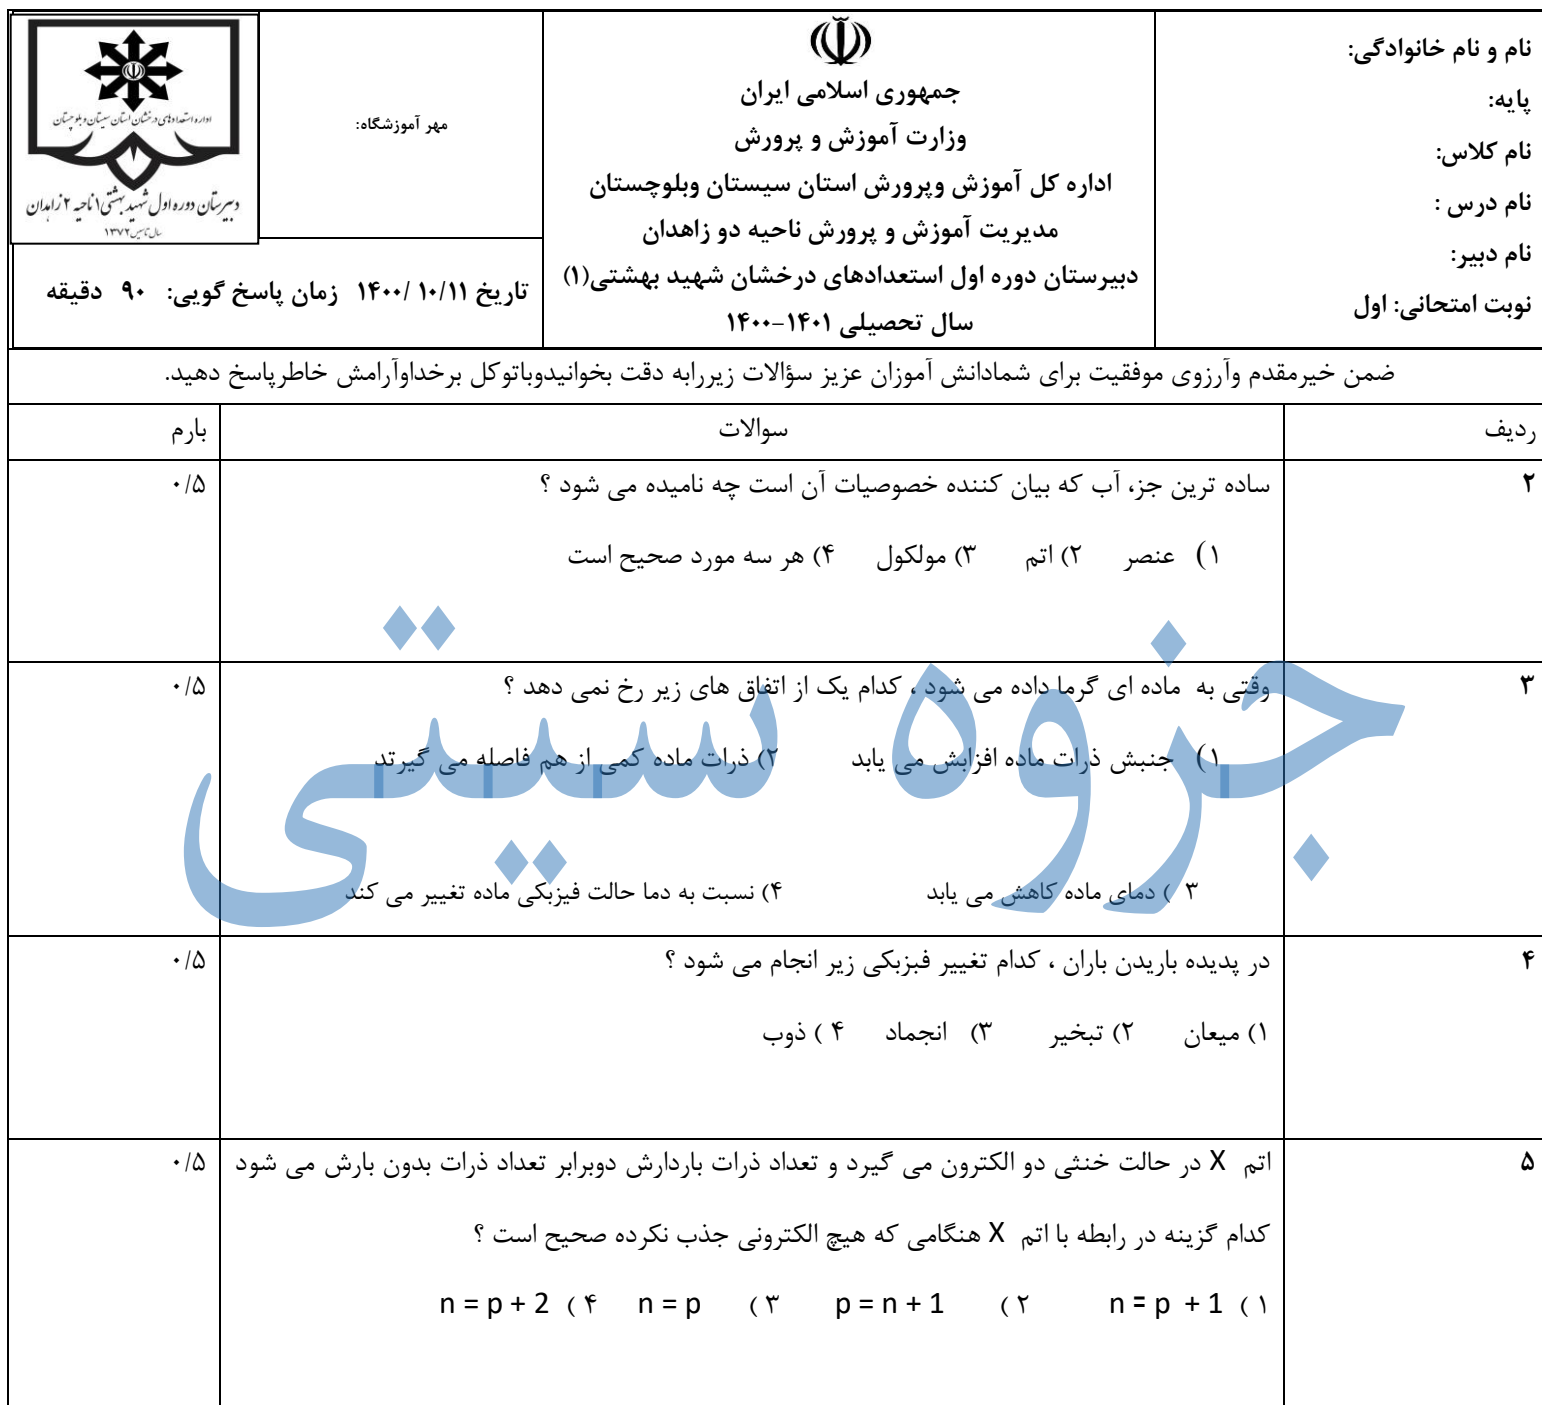 نام و نام خانوادگی:
پایه:
نام کلاس:
نام درس :
نام دبیر:
نوبت امتحانی: اول
جمهوری اسلامی ایران
وزارت آموزش و پرورش
اداره کل آموزش وپرورش استان سیستان وبلوچستان
مدیریت آموزش و پرورش ناحیه دو زاهدان
دبیرستان دوره اول استعدادهای درخشان شهید بهشتی(۱)
سال تحصیلی ۱۴۰۱-۱۴۰۰
مهر آموزشگاه:
تاریخ ۱۰/۱۱ /۱۴۰۰ زمان پاسخ گویی: ۹۰ دقیقه
اداره استعدادهای درخشان استان سیستان و بلوچستان
دبیرستان دوره اول شهید بهشتی ۱ ناحیه ۲ زاهدان
سال تاسیس ۱۳۷۲
ضمن خیرمقدم وآرزوی موفقیت برای شمادانش آموزان عزیز سؤالات زیررابه دقت بخوانیدوباتوکل برخداوآرامش خاطرپاسخ دهید.
ردیف سوالات بارم
۲ ساده ترین جز، آب که بیان کننده خصوصیات آن است چه نامیده می شود ؟ ۰/۵
۱) عنصر ۲) اتم ۳) مولکول ۴) هر سه مورد صحیح است
۳ وقتی به ماده ای گرما داده می شود ، کدام یک از اتفاق های زیر رخ نمی دهد ؟ ۰/۵
۱) جنبش ذرات ماده افزایش می یابد ۲) ذرات ماده کمی از هم فاصله می گیرتد
۳ ) دمای ماده کاهش می یابد ۴) نسبت به دما حالت فیزبکی ماده تغییر می کند
۴ در پدیده باریدن باران ، کدام تغییر فبزبکی زیر انجام می شود ؟ ۰/۵
۱) میعان ۲) تبخیر ۳) انجماد ۴ ) ذوب
۵ اتم X در حالت خنثی دو الکترون می گیرد و تعداد ذرات باردارش دوبرابر تعداد ذرات بدون بارش می شود ۰/۵
کدام گزینه در رابطه با اتم X هنگامی که هیچ الکترونی جذب نکرده صحیح است ؟
۱ ) n = p + 1 ۲ ) p = n + 1 ۳ ) n = p ۴ ) n = p + 2
جزوه سیتی